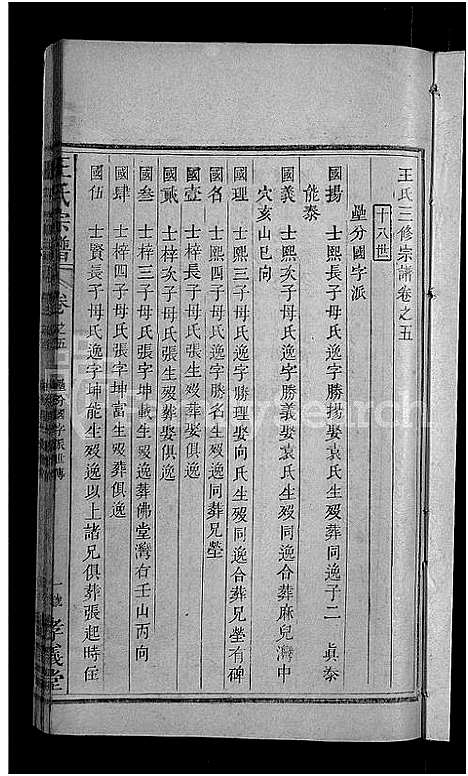 王氏三修宗譜卷之五
十八世
壘分國字派
國揚 士熙長子母氏逸字勝揚娶袁氏生歿葬同逸子二 眞泰
能泰
國義 士熙次子母氏逸字勝義娶袁氏生歿同逸合葬麻兒灣中
穴亥山巳向
國理 士熙三子母氏逸字勝理娶向氏生歿同逸合葬兄塋有碑
國名 士熙四子母氏逸字勝名生歿逸同葬兄塋
國壹 士梓長子母氏逸生歿葬娶俱逸
國貳 士梓次子母氏逸生歿葬娶俱逸
國叁 士梓三子母氏張字坤載生歿逸葬佛堂灣右壬山丙向
國肆 士梓四子母氏張字坤富生歿葬俱逸
國伍 士賢長子母氏逸字坤能生歿逸以上諸兄俱葬張起時住
王氏宗譜
卷之五
壘分國字派世傳
一號
孝義堂